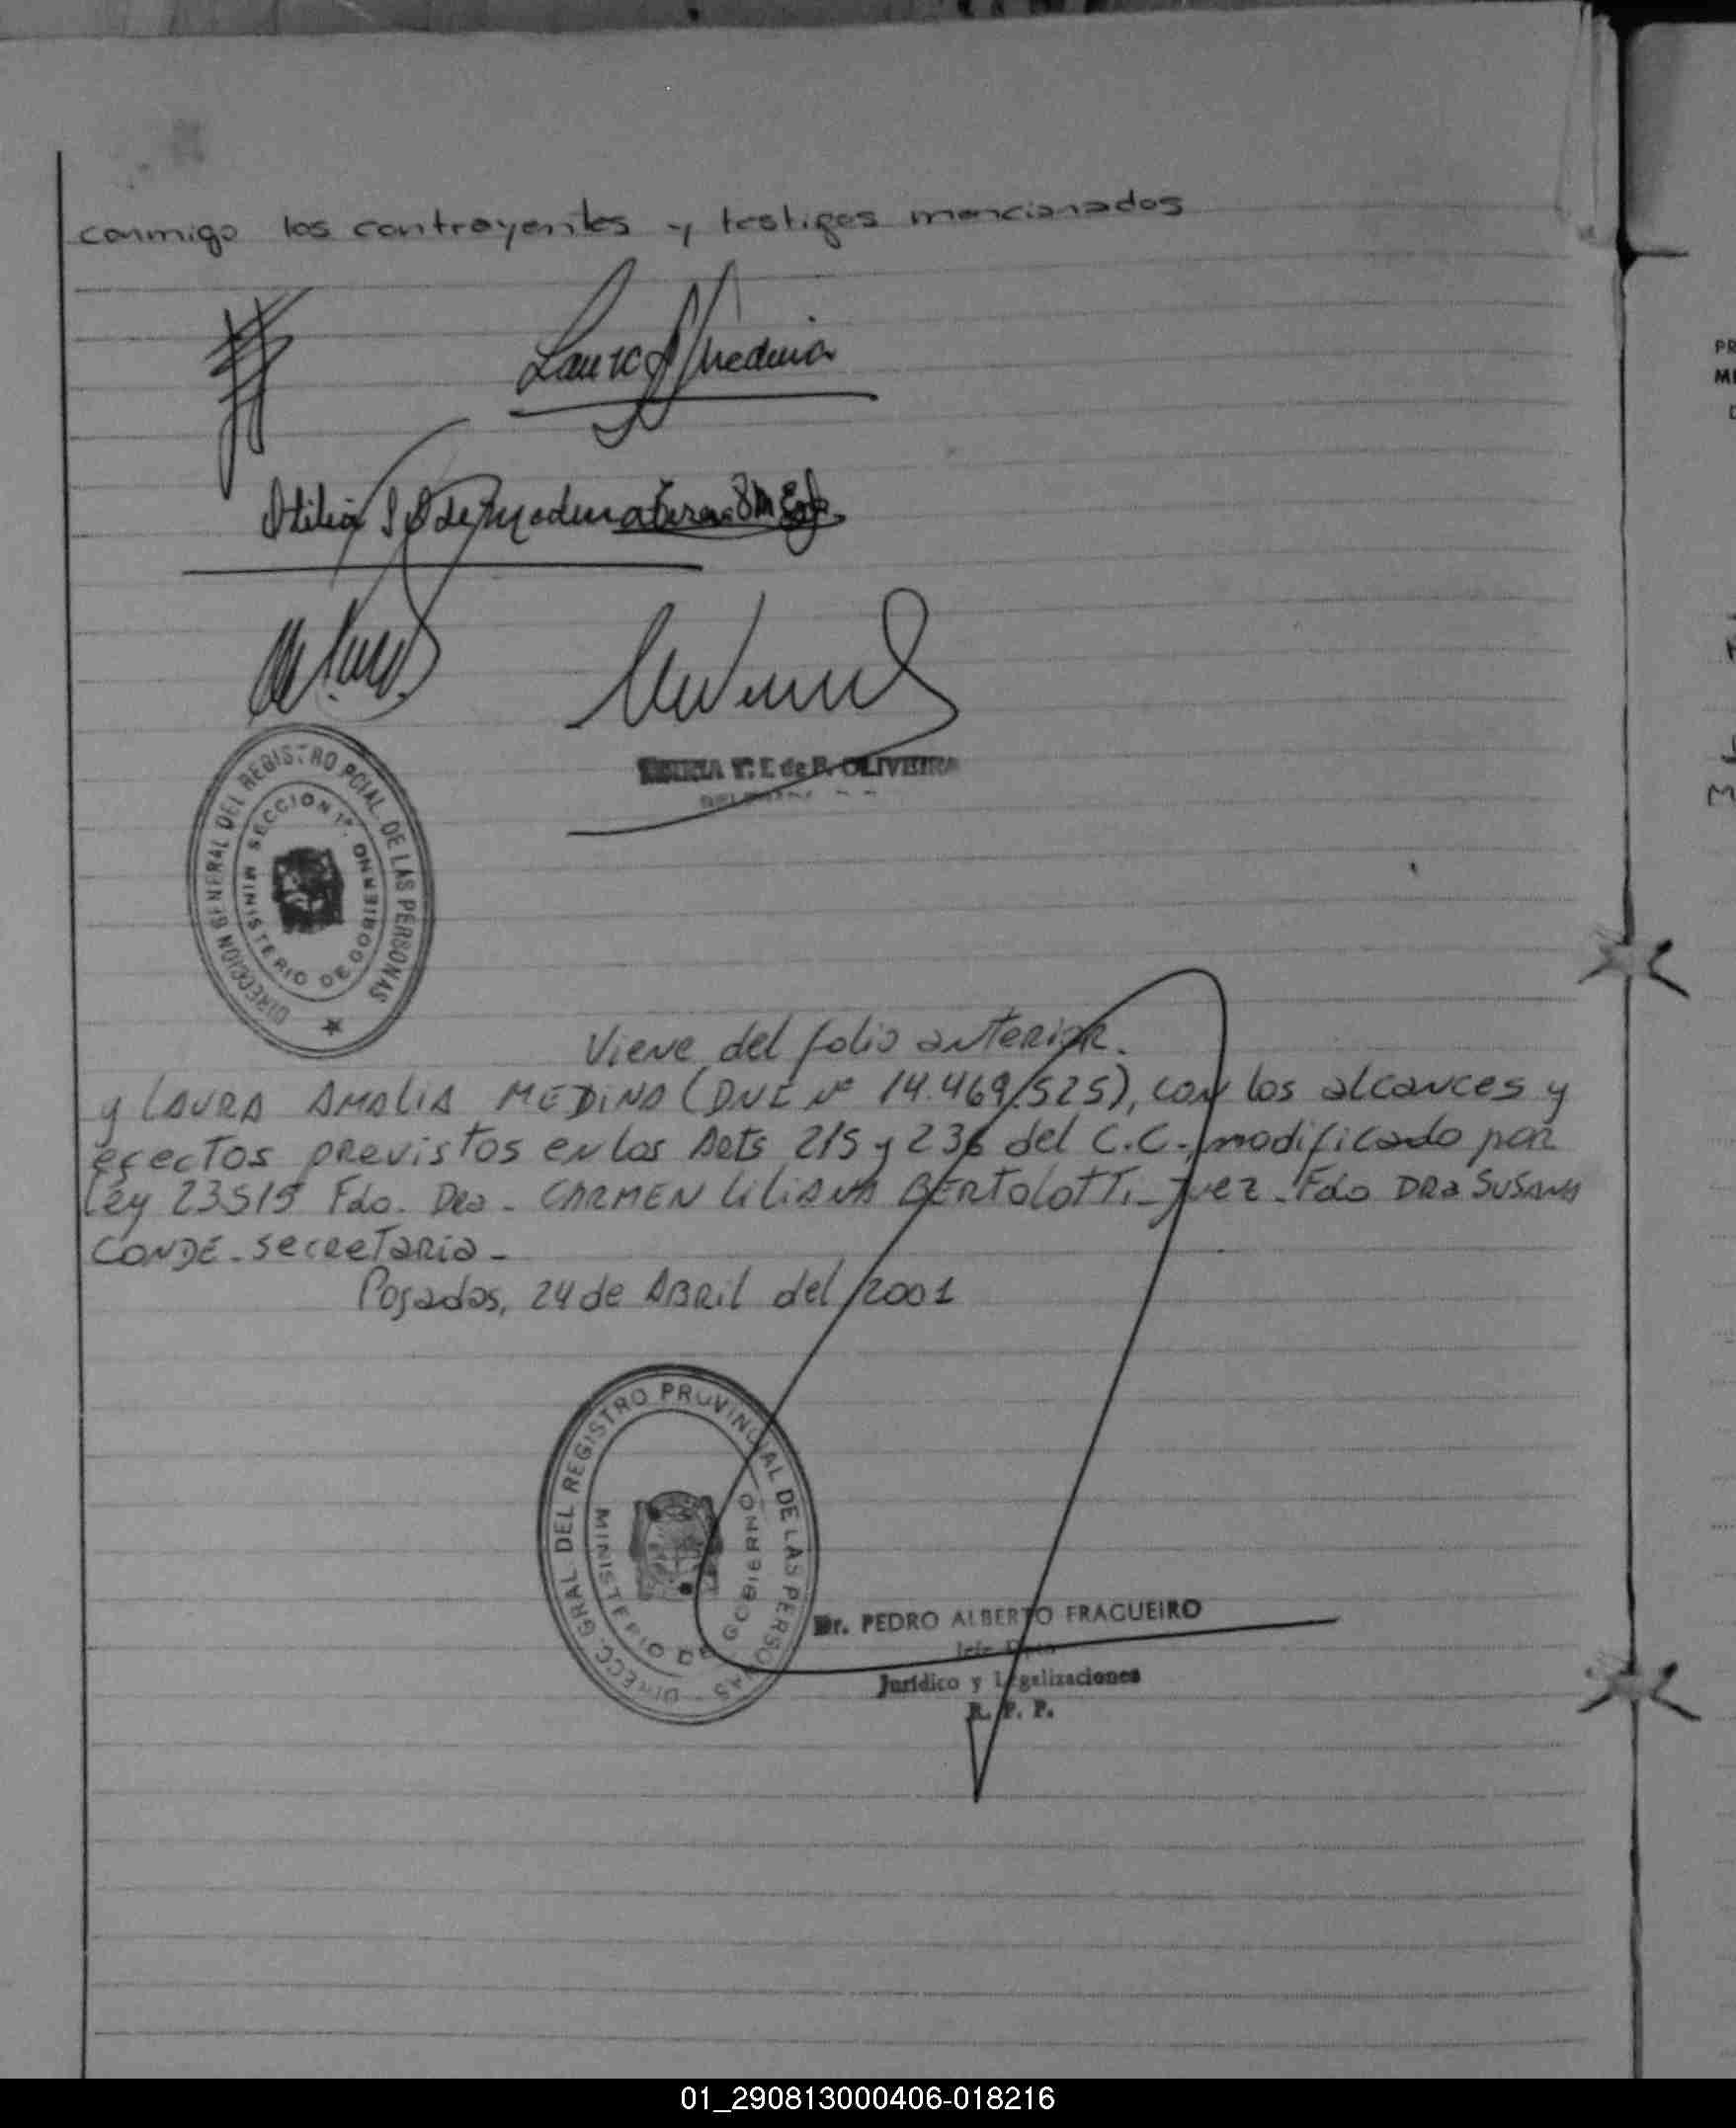 conmigo los contrayentes y testigos mencionados
Laura A Medina
Otilia S. de Medina
OLIVEIRA
DIRECCION GENERAL DEL REGISTRO PCIAL. DE LAS PERSONAS
SECCION 1ª. MINISTERIO DE GOBIERNO
Viene del folio anterior.
y LAURA AMALIA MEDINA (DNI Nº 14.469.525), con los alcances y
efectos previstos en los Arts 215 y 236 del C.C., modificado por
Ley 23515 Fdo. Dra. CARMEN LILIANA BERTOLOTTI - Juez - Fdo DRa SUSANA
CONDE - secretaria -
Posadas, 24 de ABRil del 2001
DIRECC. GRAL. DEL REGISTRO PROVINCIAL DE LAS PERSONAS
MINISTERIO DE GOBIERNO
Dr. PEDRO ALBERTO FRAGUEIRO
Jurídico y Legalizaciones
R. P. P.
PR
MI
01_290813000406-018216